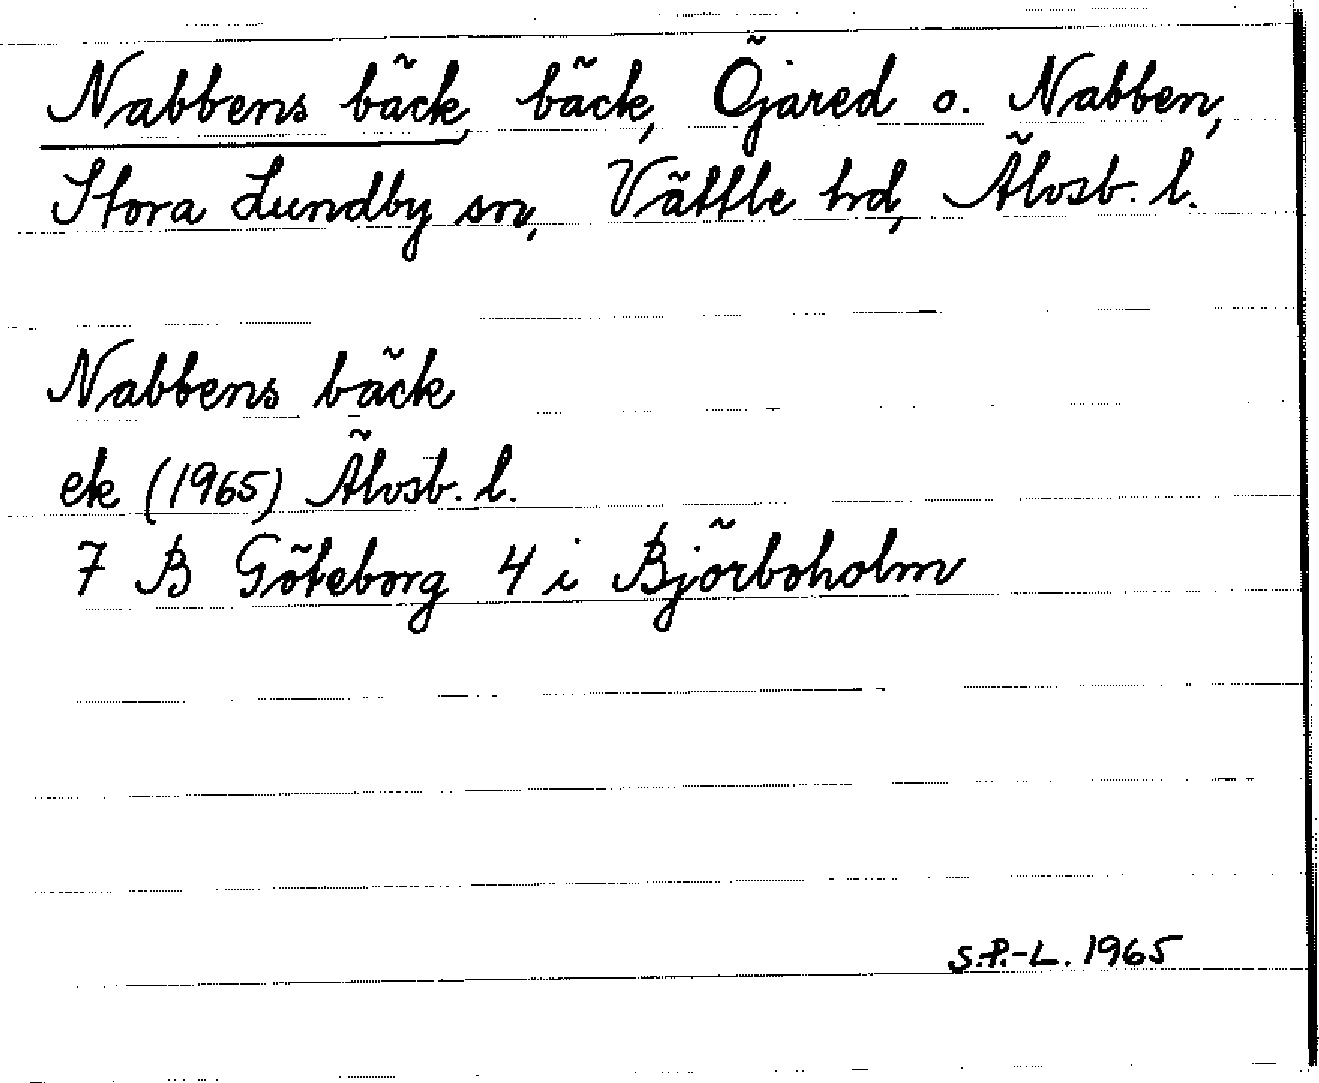 Nabbens bäck, bäck, Öjared o. Nabben,
Stora Lundby sn, Vättle hd, Älvsb. l.
Nabbens bäck
ek (1965) Älvsb. l.
7 B Göteborg 4 i Björboholm
S.P.-L. 1965